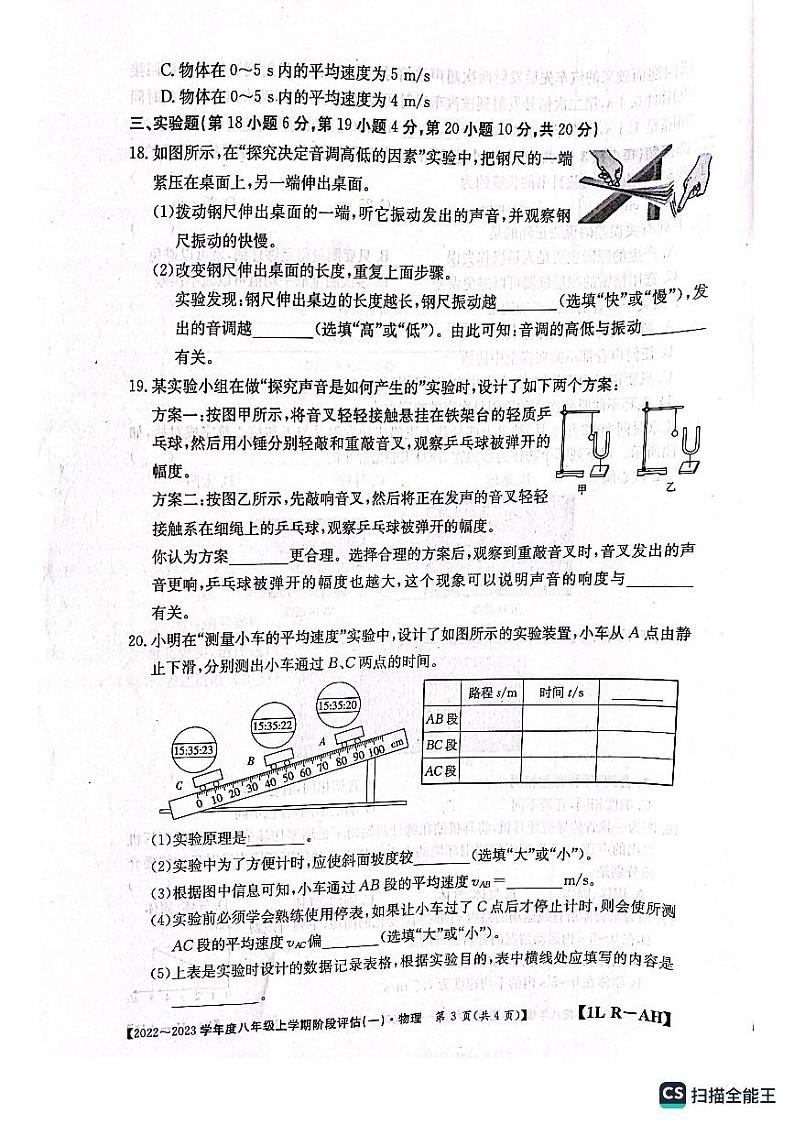 C. 物体在 0～5 s 内的平均速度为 5 m/s
D. 物体在 0～5 s 内的平均速度为 4 m/s
三、实验题(第 18 小题 6 分,第 19 小题 4 分,第 20 小题 10 分,共 20 分)
18. 如图所示,在“探究决定音调高低的因素”实验中,把钢尺的一端
紧压在桌面上,另一端伸出桌面。
(1)拨动钢尺伸出桌面的一端,听它振动发出的声音,并观察钢
尺振动的快慢。
(2)改变钢尺伸出桌面的长度,重复上面步骤。
实验发现:钢尺伸出桌边的长度越长,钢尺振动越______(选填“快”或“慢”),发
出的音调越______(选填“高”或“低”)。由此可知:音调的高低与振动______
有关。
19. 某实验小组在做“探究声音是如何产生的”实验时,设计了如下两个方案:
方案一:按图甲所示,将音叉轻轻接触悬挂在铁架台的轻质乒
乓球,然后用小锤分别轻敲和重敲音叉,观察乒乓球被弹开的
幅度。
甲 乙
方案二:按图乙所示,先敲响音叉,然后将正在发声的音叉轻轻
接触系在细绳上的乒乓球,观察乒乓球被弹开的幅度。
你认为方案______更合理。选择合理的方案后,观察到重敲音叉时,音叉发出的声
音更响,乒乓球被弹开的幅度也越大,这个现象可以说明声音的响度与______
有关。
20. 小明在“测量小车的平均速度”实验中,设计了如图所示的实验装置,小车从 A 点由静
止下滑,分别测出小车通过 B、C 两点的时间。
15:35:23 15:35:22 15:35:20
C B A
0 10 20 30 40 50 60 70 80 90 100 cm
路程 s/m 时间 t/s ______
AB 段
BC 段
AC 段
(1)实验原理是______。
(2)实验中为了方便计时,应使斜面坡度较______(选填“大”或“小”)。
(3)根据图中信息可知,小车通过 AB 段的平均速度 vAB=______m/s。
(4)实验前必须学会熟练使用停表,如果让小车过了 C 点后才停止计时,则会使所测
AC 段的平均速度 vAC偏______(选填“大”或“小”)。
(5)上表是实验时设计的数据记录表格,根据实验目的,表中横线处应填写的内容是
______。
【2022～2023 学年度八年级上学期阶段评估(一)·物理 第 3 页(共 4 页)】 【1L R－AH】
CS 扫描全能王